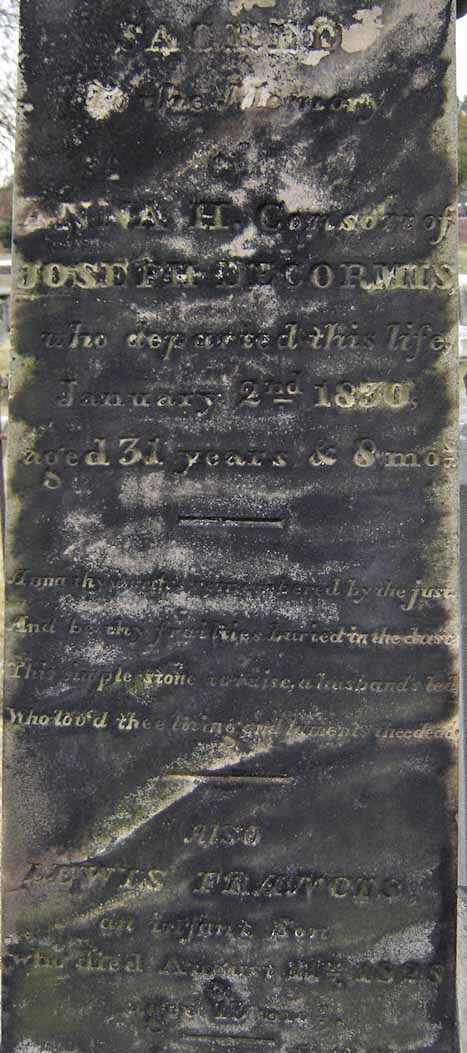 SACRED
to the Memory
of
ANNA H. Consort of
JOSEPH DECORMIS,
who departed this life,
January 2nd 1830,
aged 31 years & 8 mo:
Anna thy remembered by the just
And be thy frailties buried in the dust
This simple stone to raise, a husband's led
Who lov'd thee living and laments thee dead
ALSO
LEWIS FRANCIS,
an infant Son
who died August 1828
aged